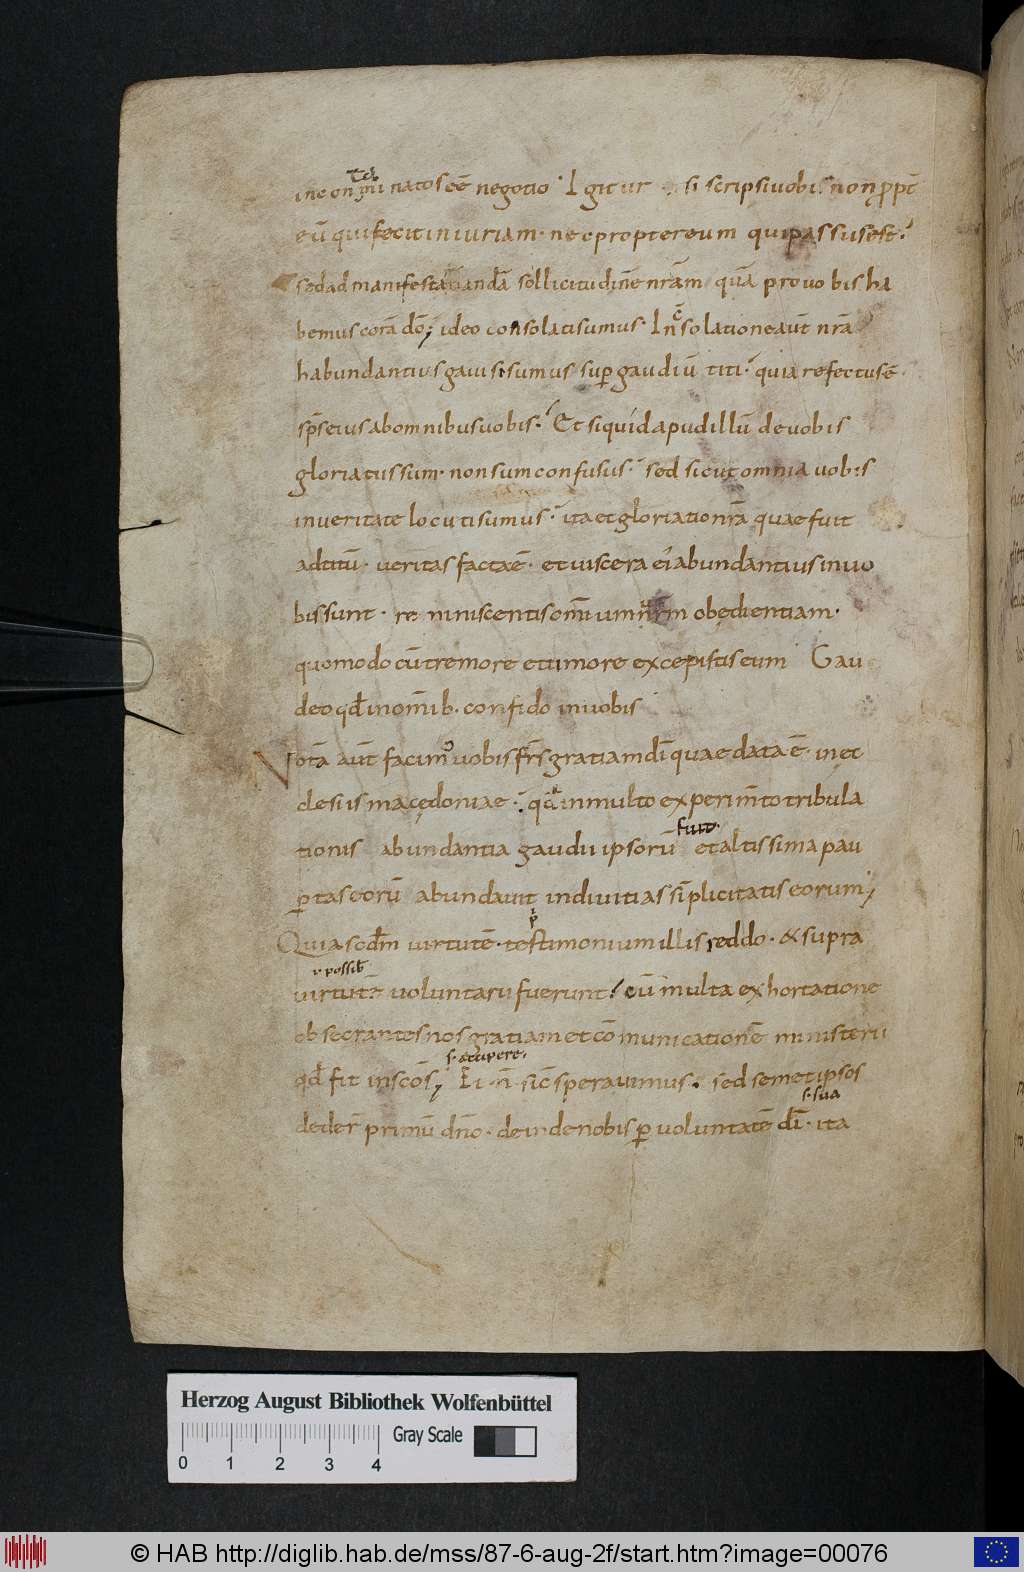 inconminatos eē negotio · Igitur si scripsi uobis non ꝓpt̄
eū qui fecit iniuriam · nec propter eum qui passus est ·
sed ad manifestandā sollicitudinē nrām quā pro uobis ha
bemus corā dō; ideo consolati sumus · In c̄solatione aūt nrā
habundantius gauisi sumus sup gaudiū titi · quia refectus ē
sp̄s eius ab omnibus uobis · Et si quid apud illū de uobis
gloriatus sum · non sum confusus · sed sicut omnia uobis
in ueritate locuti sumus · ita et gloriatio nrā quae fuit
ad titū · ueritas facta ē · et uiscera ei abundantius in uo
bis sunt · reminiscentis omniū urm obędientiam ·
quomodo cū tremore et timore excepistis eum Gau
deo qd̄ in omīb · confido in uobis
Notā aūt facim uobis fr̄s gratiam dī quae data ē · in ec
clesiis macędoniae · qd̄ in multo experim̄to tribula
fuit ·
tionis abundantia gaudii ipsorū et altissima pau
ꝑtas eorū abundauit in diuitias sīplicitatis eorum;
Quia scdm̄ uirtutē · testimonium illis reddo · & supra
possib
uirtutē uoluntarii fuerunt · cū multa exhortatione
obsecrantes nos gratiam et cōmunicationē ministerii
qd̄ fit in scōs; s · accipere ·
Et n̄ sic̄ sperauimus · sed semet ipsos
s · sua
deder̄ primū dn̄o · deinde nobis ꝑ uoluntatē dī · ita
Herzog August Bibliothek Wolfenbüttel
Gray Scale
0 1 2 3 4
© HAB http://diglib.hab.de/mss/87-6-aug-2f/start.htm?image=00076